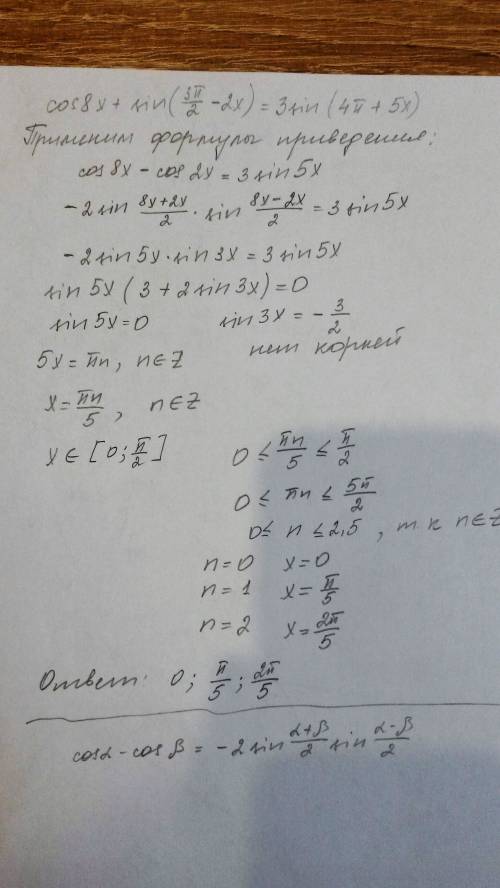 cos8x + sin(3π/2 - 2x) = 3sin(4π + 5x)
Применим формулы приведения:
cos8x - cos2x = 3sin5x
-2sin (8x+2x)/2 · sin (8x-2x)/2 = 3sin5x
-2sin5x · sin3x = 3sin5x
sin5x(3 + 2sin3x) = 0
sin5x = 0 sin3x = -3/2
нет корней
5x = πn, n∈Z
x = πn/5, n∈Z
x∈[0; π/2] 0 ≤ πn/5 ≤ π/2
0 ≤ πn ≤ 5π/2
0 ≤ n ≤ 2,5, т к n∈Z
n = 0 x = 0
n = 1 x = π/5
n = 2 x = 2π/5
Ответ: 0; π/5; 2π/5
cosα - cosβ = -2sin (α+β)/2 sin (α-β)/2